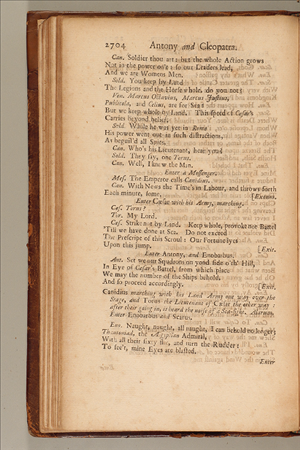 2704 Antony and Cleopatra.
Can. Soldier thou art: but the whole Action grows
Not in the power on't: so our Leaders lead,
And we are Womens Men.
Sold. You keep by Land
The Legions and the Horse whole, do you not?
Ven. Marcus Octavius, Marcus Justeus,
Publicola, and Celius, are for Sea:
But we keep whole by Land. This speed of Cæsar's
Carries beyond belief.
Sold. While he was yet in Rome
His power went out in such distractions,
As beguil'd all Spies.
Can. Who's his Lieutenant, hear you?
Sold. They say, one Torus.
Can. Well, I know the Man.
Enter a Messenger.
Mes. The Emperor calls Canidius.
Can. With News the Time's in Labour, and throws forth
Each minute, some. [Exeunt.
Enter Cæsar with his Army, marching.
Cæs. Torus?
Tor. My Lord.
Cæs. Strike not by Land. Keep whole, provoke not Battel
'Till we have done at Sea. Do not exceed
The Prescript of this Scroul: Our Fortune lyes
Upon this jump. [Exit.
Enter Antony, and Enobarbus.
Ant. Set we our Squadrons on yond side o'th' Hill,
In Eye of Cæsar's Battel, from which place
We may the number of the Ships behold,
And so proceed accordingly. [Exit.
Canidius marching with his Land Army one way over the
Stage, and Torus the Lieutenant of Cæsar the other way:
after their going in, is heard the noise of a Sea-fight. Alarum.
Enter Enobarbus and Scarus.
Eno. Naught, naught, all naught, I can behold no longer;
Thantoniad, the Ægyptian Admiral,
With all their sixty fly, and turn the Rudder:
To see't, mine Eyes are blasted.
Enter